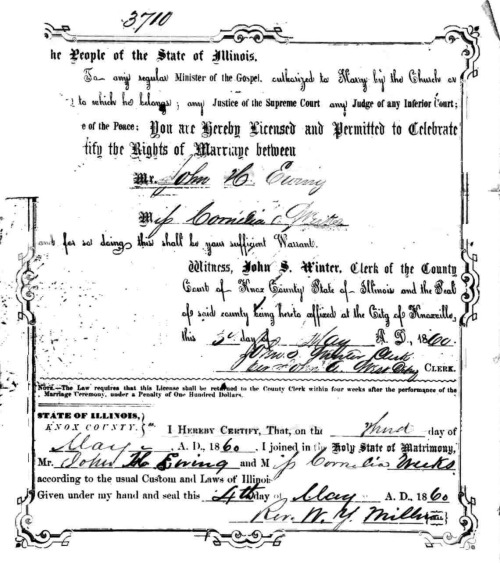 3710
he People of the State of Illinois,
To any regular Minister of the Gospel, authorized to Marry by the Church or
to which he belongs; any Justice of the Supreme Court any Judge of any Inferior Court;
e of the Peace: You are Hereby Licensed and Permitted to Celebrate
tify the Rights of Marriage between
Mr. John H Ewing
Miss Cornelia
and for so doing this shall be your sufficient Warrant.
Witness, John S. Winter, Clerk of the County
Court of Knox County State of Illinois and the Seal
of said county being hereto affixed at the City of Knoxville,
this 3d day of May A. D., 1860.
John S. Winter Clerk
CLERK.
NOTE.—The Law requires that this License shall be returned to the County Clerk within four weeks after the performance of the
Marriage Ceremony, under a Penalty of One Hundred Dollars.
STATE OF ILLINOIS,
KNOX COUNTY. I HEREBY CERTIFY, That, on the third day of
May A. D., 1860, I joined in the Holy State of Matrimony,
Mr. John H Ewing and Miss Cornelia Weeks
according to the usual Custom and Laws of Illinois
Given under my hand and seal this 4th day of May A. D., 1860
Rev. W. Y.